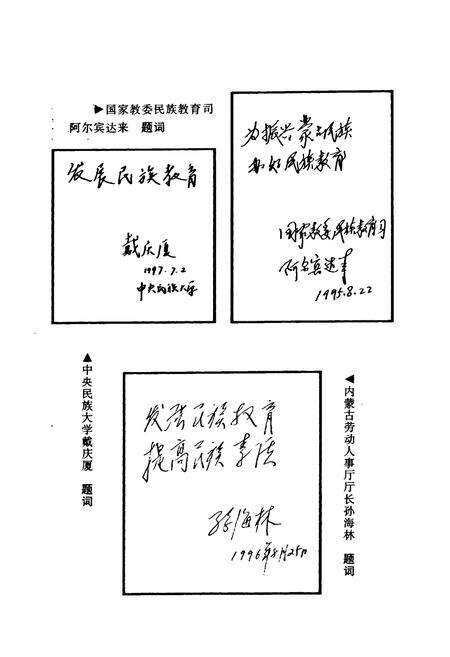 ▶国家教委民族教育司
阿尔宾达来 题词
为振兴蒙古民族
办好民族教育
国家教委民族教育司
阿尔宾达来
1995.8.22
发展民族教育
戴庆厦
1997.7.2
中央民族大学
▲中央民族大学戴庆厦 题词
发展民族教育
提高民族素质
孙海林
1996年8月25日
◀内蒙古劳动人事厅厅长孙海林 题词